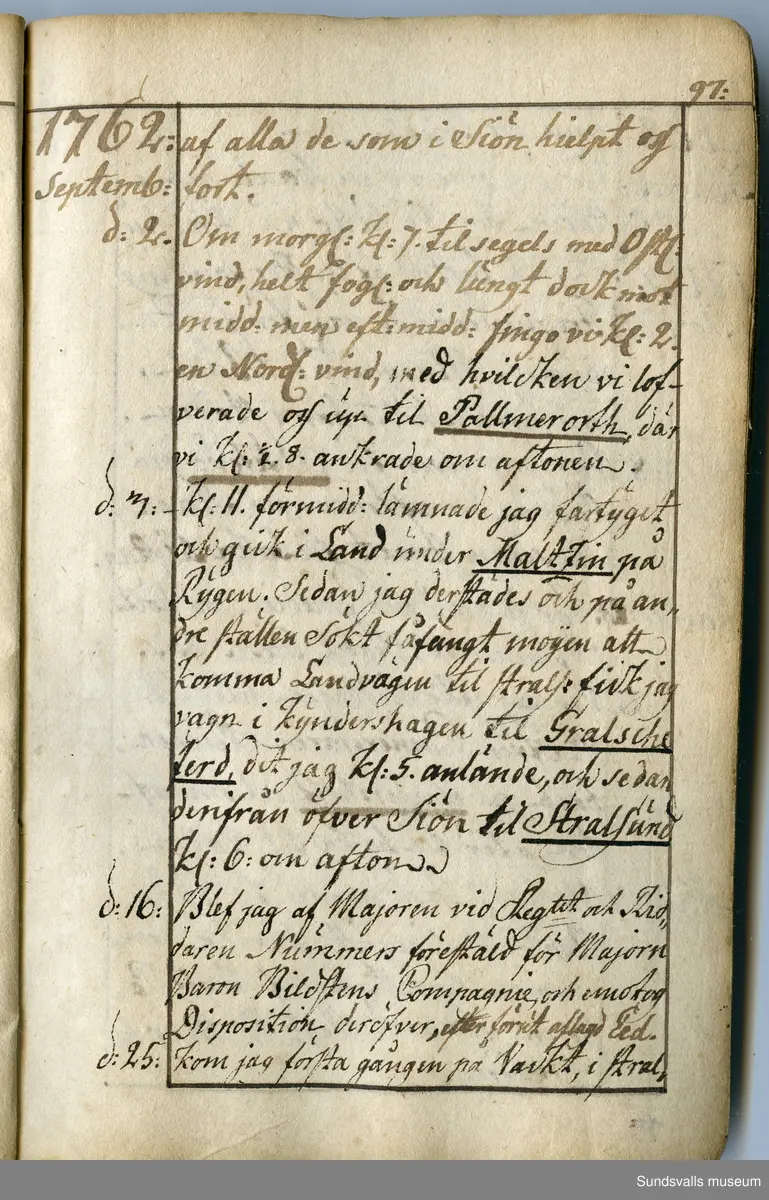 97:
1762: af alla de som i Siön hielpt oss
Septemb: fort.
d: 2. Om morg: kl: 7. til segels med Ostl:
vind, helt fogl: och lungt dock mot
midd: men eft: midd: fingo vi kl: 2.
en Nordl: vind, med hvilcken vi lof-
verade oss up til Pallmerorth, där
vi kl: ½ 8. ankrade om aftonen.
d: 3: kl: 11. förmidd: lämnade jag fartyget
och gick i Land under Maltzin på
Rÿgen. Sedan jag derstädes och på an„
dre ställen Sökt fåfengt möyen att
komma Landvägen til Strals: fick jag
vagn i Kÿndershagen til Gralsche
ferd, dit jag kl: 5. anlände, och sedan
derifrån öfver Siön til Stralsund
kl: 6: om afton.
d: 16: Blef jag af Majoren vid Regtet och Rid„
daren Nummers förestäld för Majorn
Baron Bildstens Compagnie, och emotog
Disposition deröfver, efter förut aflagd Eed.
d: 25: kom jag första gången på Vackt, i Stral„
Sundsvalls museum